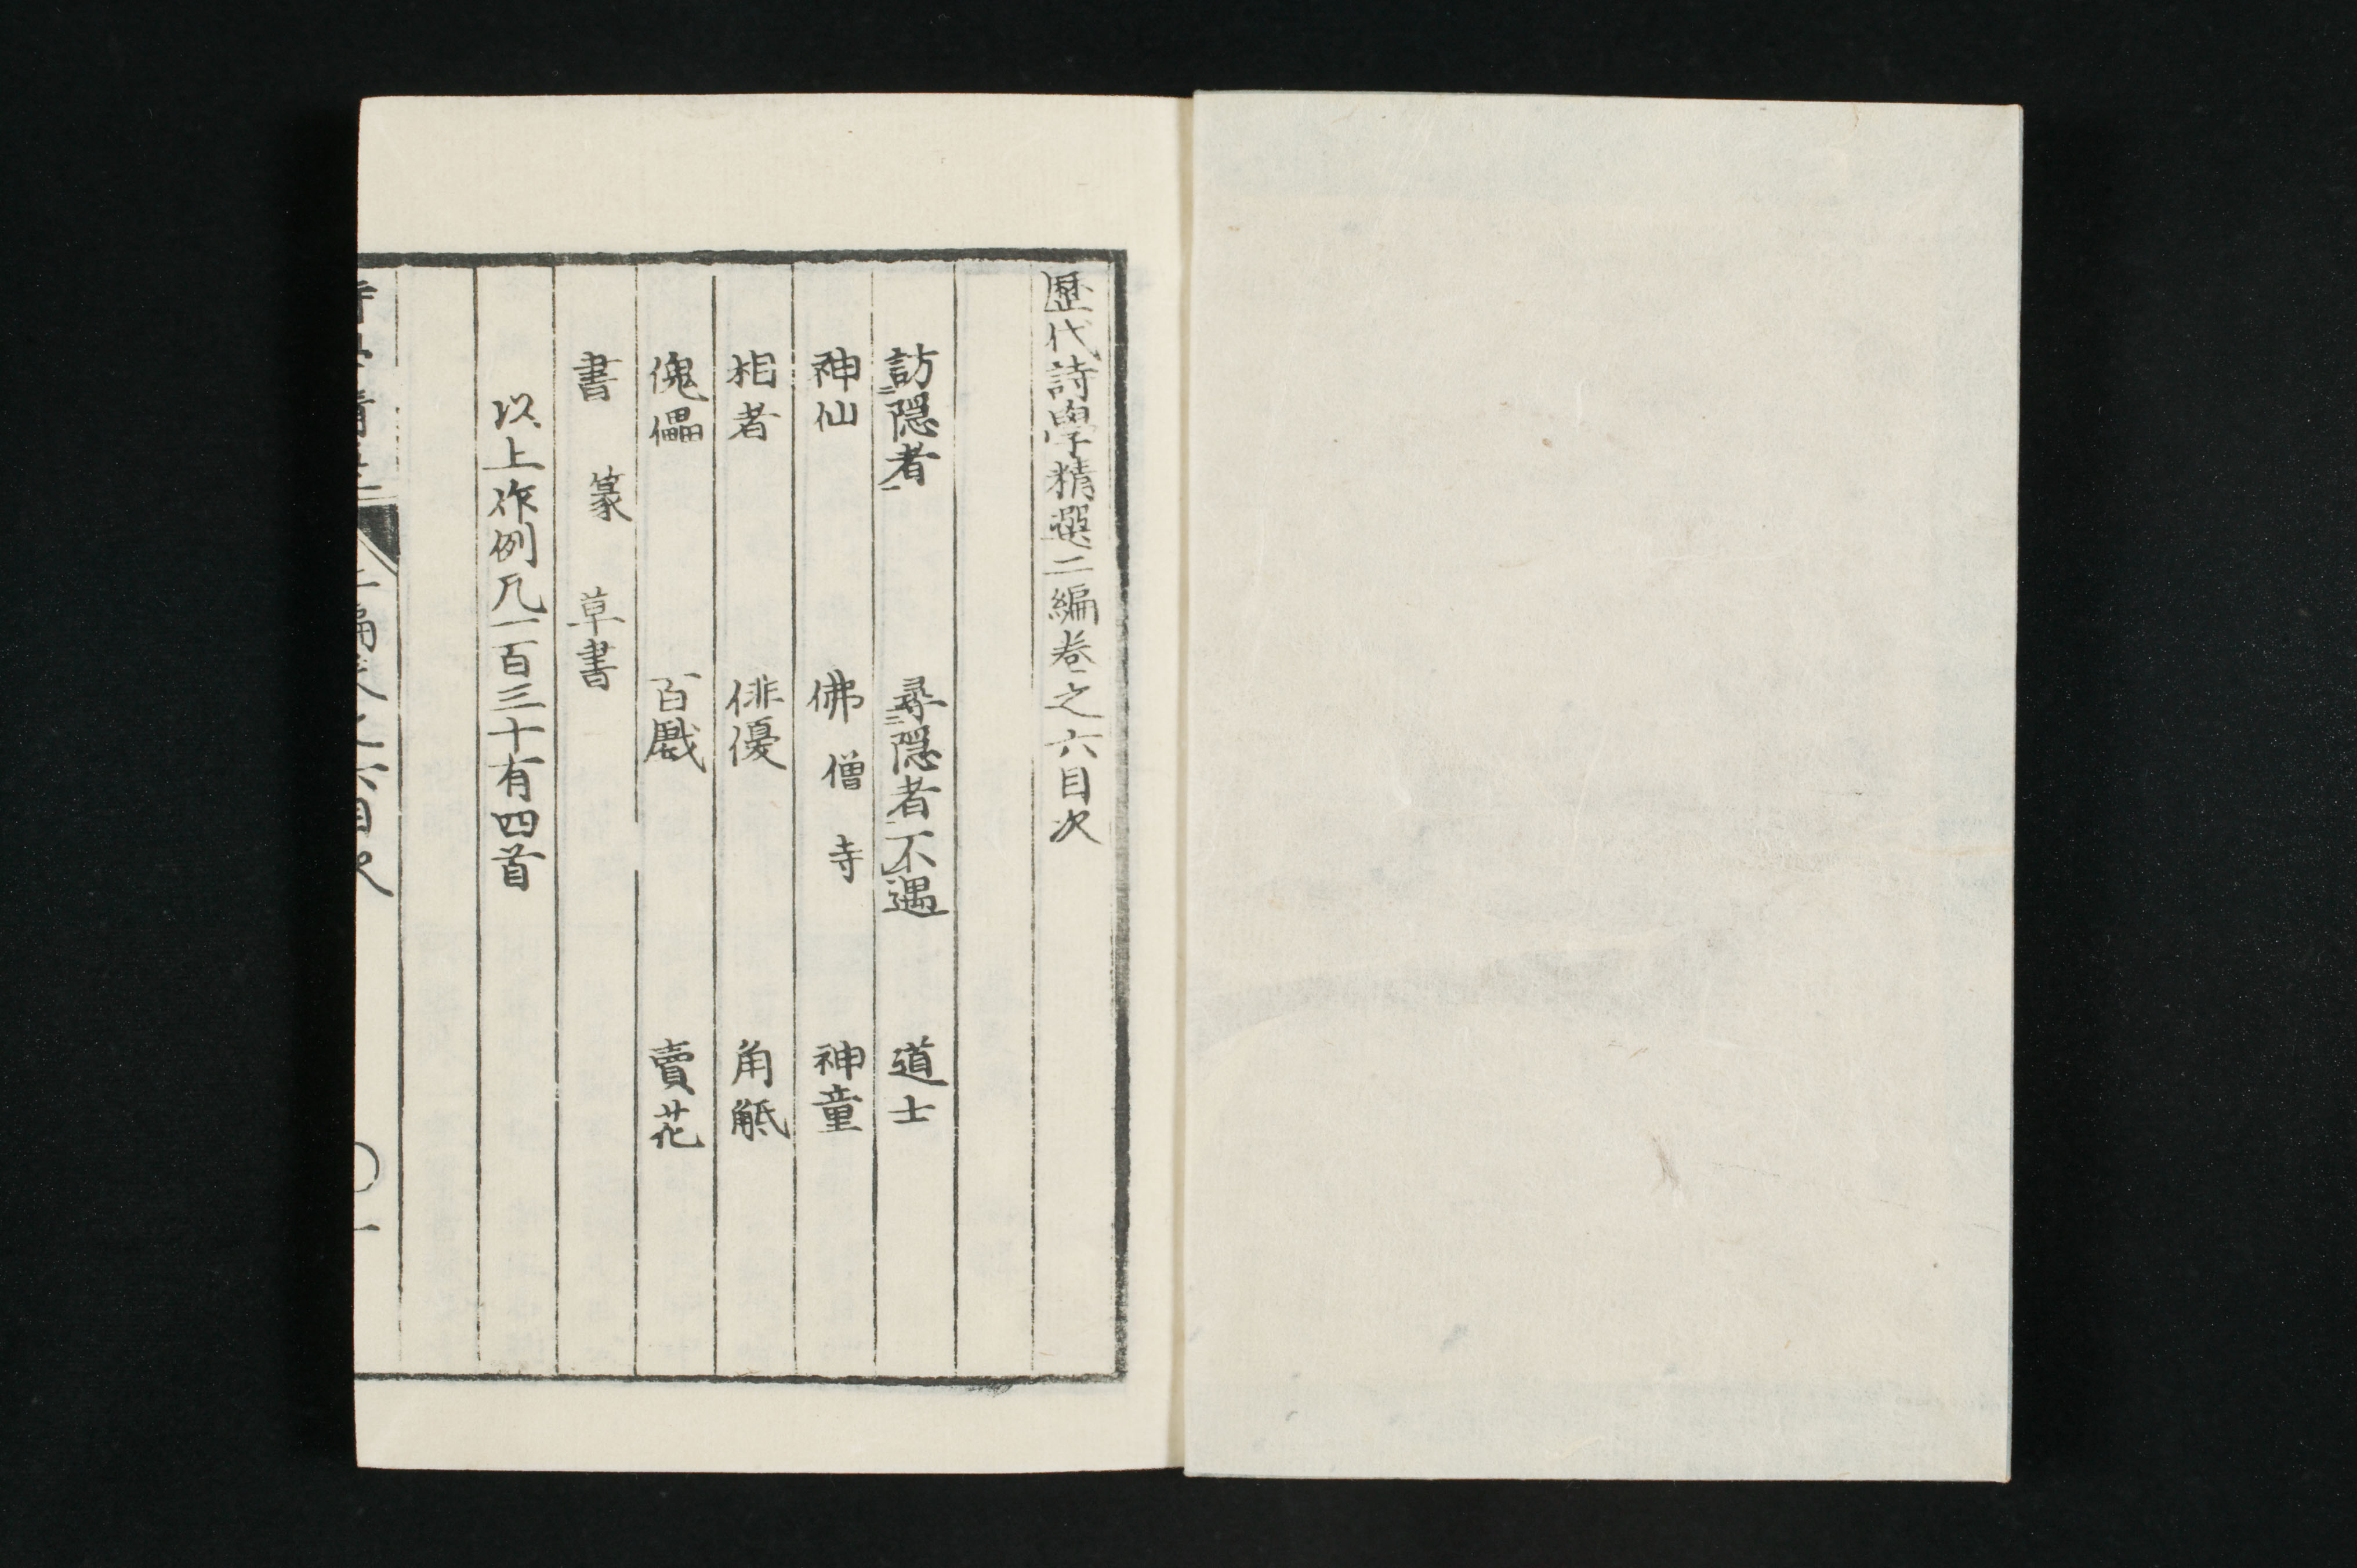 歷代詩學精選二編卷之六目次
訪隱者 尋隱者不遇 道士
神仙 佛 僧 寺 神童
相者 俳優 角觝
傀儡 百戲 賣花
書 篆 草書
以上作例凡一百三十有四首
二編卷之六目次 〇一